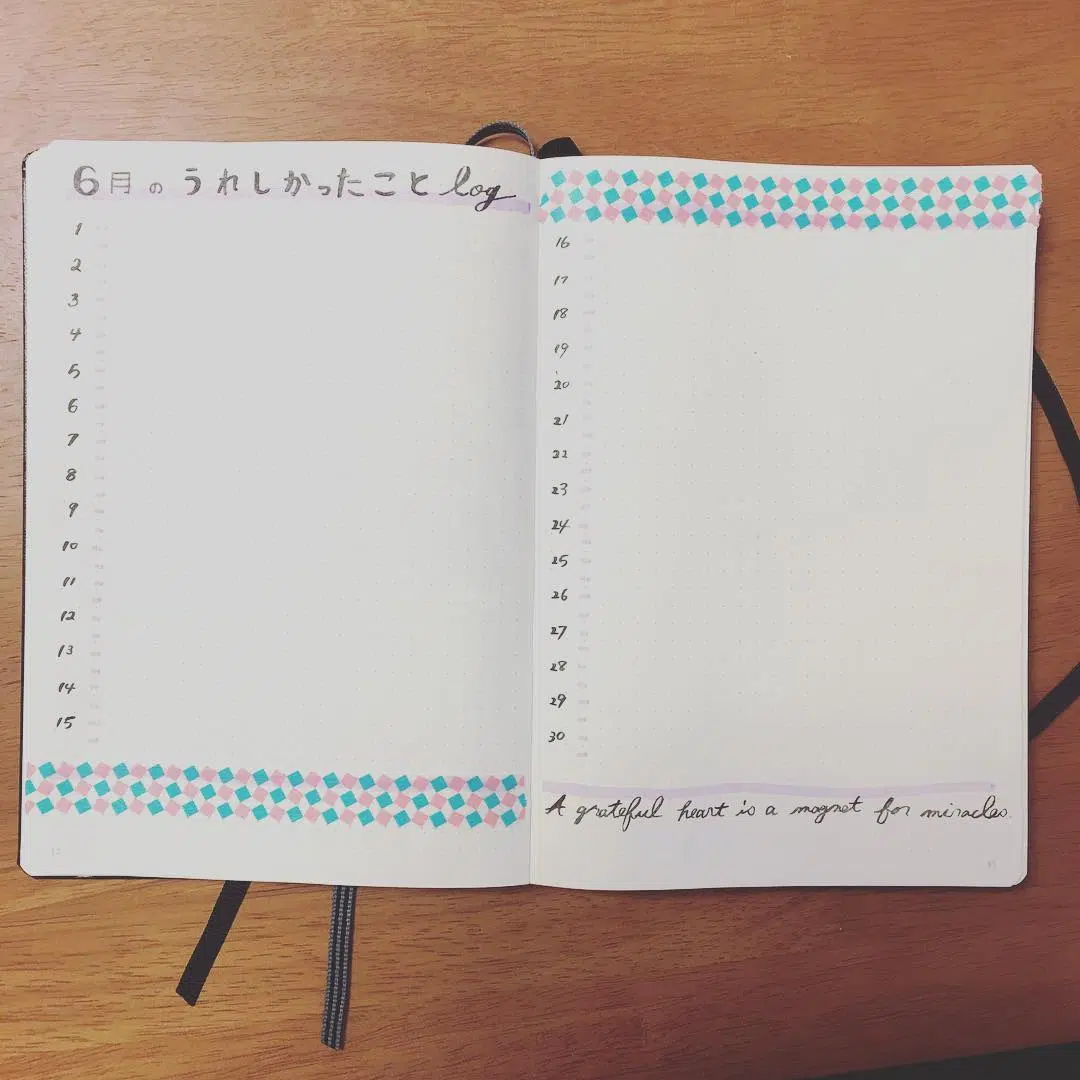 6月のうれしかったことlog
1
2
3
4
5
6
7
8
9
10
11
12
13
14
15
16
17
18
19
20
21
22
23
24
25
26
27
28
29
30
A grateful heart is a magnet for miracles.